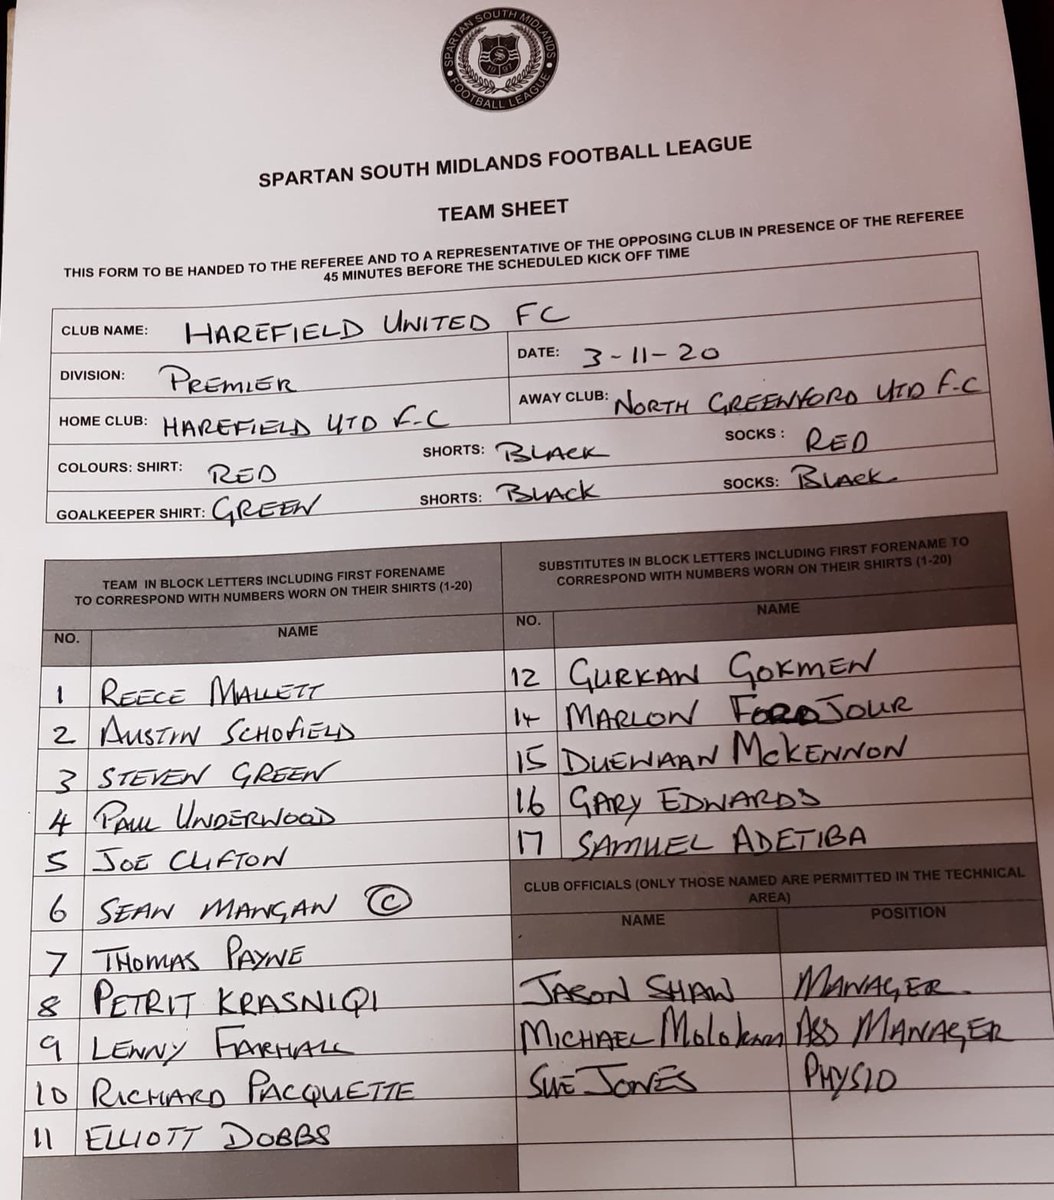 SPARTAN SOUTH MIDLANDS
FOOTBALL LEAGUE
SPARTAN SOUTH MIDLANDS FOOTBALL LEAGUE
TEAM SHEET
THIS FORM TO BE HANDED TO THE REFEREE AND TO A REPRESENTATIVE OF THE OPPOSING CLUB IN PRESENCE OF THE REFEREE
45 MINUTES BEFORE THE SCHEDULED KICK OFF TIME
CLUB NAME: HAREFIELD UNITED FC
DIVISION: PREMIER DATE: 3-11-20
HOME CLUB: HAREFIELD UTD F.C AWAY CLUB: NORTH GREENFORD UTD F.C
COLOURS: SHIRT: RED SHORTS: BLACK SOCKS: RED
GOALKEEPER SHIRT: GREEN SHORTS: BLACK SOCKS: BLACK
TEAM IN BLOCK LETTERS INCLUDING FIRST FORENAME
TO CORRESPOND WITH NUMBERS WORN ON THEIR SHIRTS (1-20)
NO. NAME
1 REECE MALLETT
2 AUSTIN SCHOFIELD
3 STEVEN GREEN
4 PAUL UNDERWOOD
5 JOE CLIFTON
6 SEAN MANGAN ©
7 THOMAS PAYNE
8 PETRIT KRASNIQI
9 LENNY FARHALL
10 RICHARD PACQUETTE
11 ELLIOTT DOBBS
SUBSTITUTES IN BLOCK LETTERS INCLUDING FIRST FORENAME TO
CORRESPOND WITH NUMBERS WORN ON THEIR SHIRTS (1-20)
NO. NAME
12 GURKAN GOKMEN
14 MARLON FORDJOUR
15 DUEWAAN MCKENNON
16 GARY EDWARDS
17 SAMUEL ADETIBA
CLUB OFFICIALS (ONLY THOSE NAMED ARE PERMITTED IN THE TECHNICAL
AREA)
NAME POSITION
JASON SHAW MANAGER
MICHAEL ASS MANAGER
SUE JONES PHYSIO